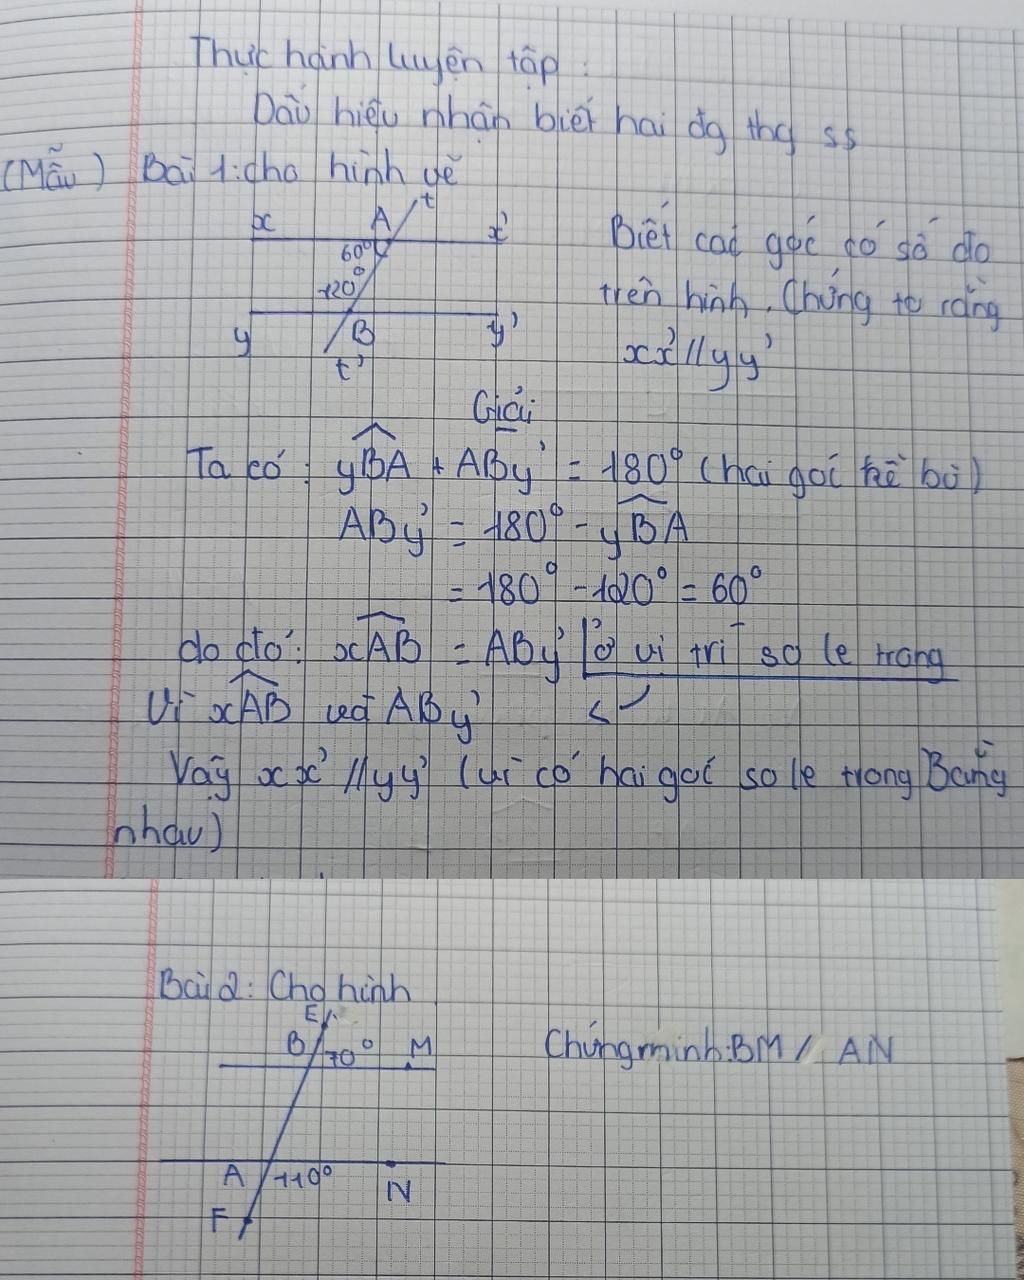 Thực hành luyện tập:
Dấu hiệu nhận biết hai đg thg ss
(Mẫu) Bài 1: cho hình vẽ
x A t x'
60°
120°
y B y'
t'
Biết các góc có số đo
trên hình. Chứng tỏ rằng
xx' // yy'
Giải
Ta có: yBA + ABy' = 180° (hai góc kề bù)
ABy' = 180° - yBA
= 180° - 120° = 60°
do đó: xAB = ABy' ở vị trí so le trong
Vì xAB và ABy'
Vậy xx' // yy' (vì có hai góc so le trong Bằng
nhau)
Bài 2: Cho hình
E
B 70° M
A 110° N
F
Chứng minh: BM // AN